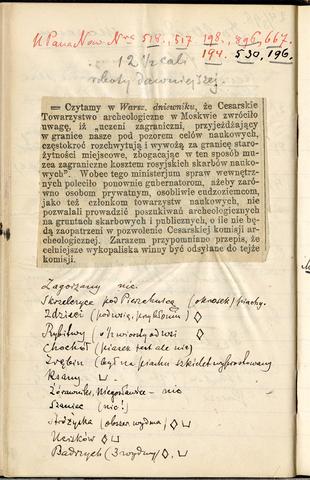 U Pana Now. Nra 518., 517 198., 896, 667.
194. 530, 196.
12 1/2 cali
roboty dawniejszej.
= Czytamy w Warsz. dniewniku, że Cesarskie
Towarzystwo archeologiczne w Moskwie zwróciło
uwagę, iż „uczeni zagraniczni, przyjeżdżający
w granice nasze pod pozorem celów naukowych,
częstokroć rozchwytują i wywożą za granicę staro-
żytności miejscowe, zbogacając w ten sposób mu-
zea zagraniczne kosztem rosyjskich skarbów nauko-
wych”. Wobec tego ministerjum spraw wewnętrz-
nych poleciło ponownie gubernatorom, ażeby zaró-
wno osobom prywatnym, osobliwie cudzoziemcom,
jako też członkom towarzystw naukowych, nie
pozwalali prowadzić poszukiwań archeologicznych
na gruntach skarbowych i publicznych, o ile nie bę-
dą zaopatrzeni w pozwolenie Cesarskiej komisji ar-
cheologicznej. Zarazem przypomniano przepis, że
celniejsze wykopaliska winny być odsyłane do tejże
komisji.
Zagorzany nic.
pod Pieczonogą piachy.
Zdzieci
Rybitwy
Chochół (piasek jest ale nic)
Zrębin (był na piasku szkielet
Ksany
Niegosławice – nic
Szaniec (nic!)
(obszer. wydma)
Uciszków
Badrzych (3 wydmy)